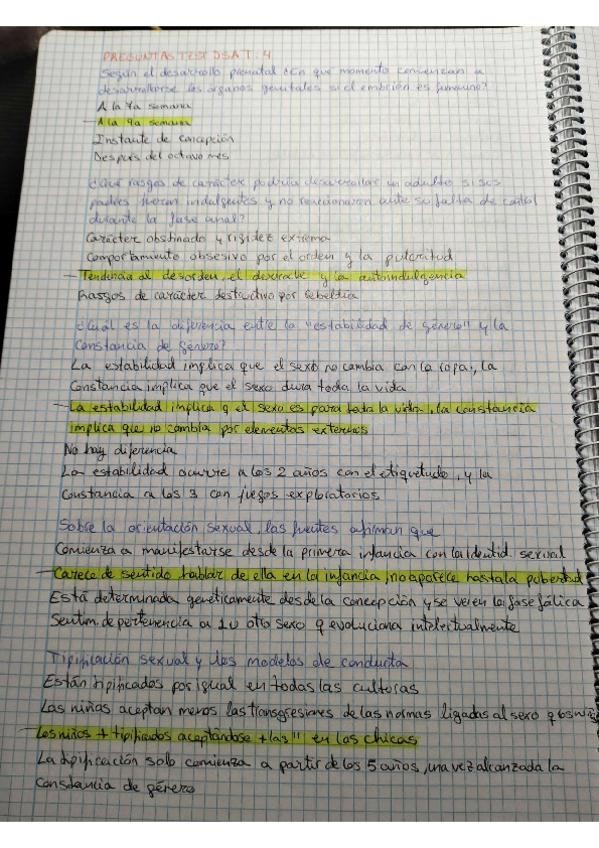 PREGUNTAS TEST DSA T. 4
Según el desarrollo prenatal ¿En qué momento comienzan a
desarrollarse los órganos genitales si el embrión es femenino?
A la 7a semana
- A la 9a semana
Instante de concepción
Después del octavo mes
¿Qué rasgos de carácter podría desarrollar un adulto si sus
padres fueron indulgentes y no reaccionaron ante su falta de control
durante la fase anal?
Carácter obstinado y rigidez extrema
Comportamiento obsesivo por el orden y la pulcritud
- Tendencia al desorden, el derroche y la autoindulgencia
Rasgos de carácter destructivo por rebeldía
¿Cuál es la diferencia entre la "estabilidad de género" y la
constancia de género?
La estabilidad implica que el sexo no cambia con la ropa, la
Constancia implica que el sexo dura toda la vida
- La estabilidad implica q el sexo es para toda la vida, la constancia
implica que no cambia por elementos externos
No hay diferencia
La estabilidad ocurre a los 2 años con el etiquetado, y la
Constancia a los 3 con juegos exploratorios
Sobre la orientación sexual, las fuentes afirman que
Comienza a manifestarse desde la primera infancia con la identid. sexual
- Carece de sentido hablar de ella en la infancia, no aparece hasta la pubertad
Está determinada genéticamente desde la concepción y se ve en la fase fálica
Sentim. de pertenencia a 1 u otro sexo q evoluciona intelectualmente
Tipificación sexual y los modelos de conducta
Están tipificados por igual en todas las culturas
Las niñas aceptan menos las transgresiones de las normas ligadas al sexo q los niños
- Los niños + tipificados aceptándose + las " en las chicas
La tipificación solo comienza a partir de los 5 años, una vez alcanzada la
Constancia de género